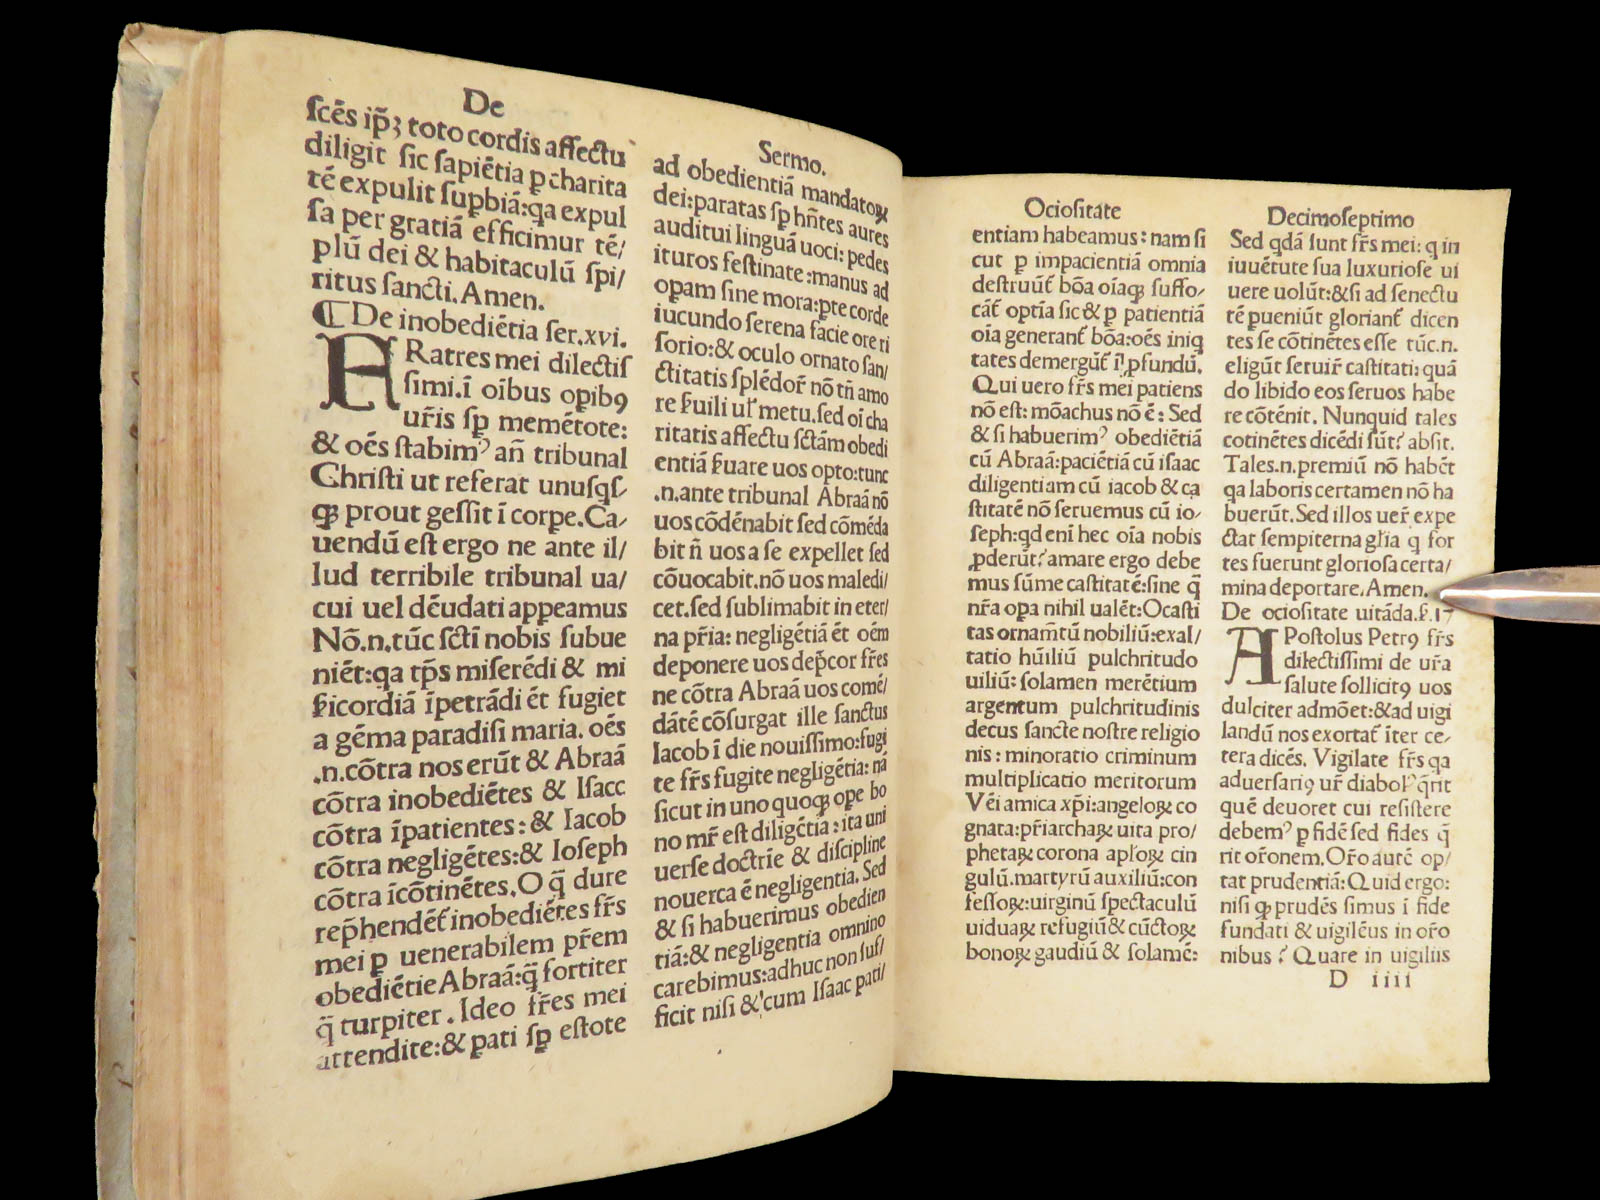 De
ſcēs ip̄ꝫ toto cordis affectu
diligit ſic ſapiētia ꝑ charita
tē expulit ſuꝑbiā:qa expul
ſa per gratiā efficimur tē/
plū dei & habitaculū ſpi/
ritus ſancti. Amen.
¶ De inobediētia ſer.xvi.
FRatres mei dilectiſ
ſimi.ī oībus opibꝯ
ur̄is ſꝑ memētote:
& oēs ſtabimꝰ an̄ tribunal
Chriſti ut referat unuſqſ/
qꝫ prout geſſit ī corpe.Ca/
uendū eſt ergo ne ante il/
lud terribile tribunal ua/
cui uel dēudati appeamus
Nō.n.tūc ſctī nobis ſubue
niēt:qa tp̄s miſerēdi & mi
ẜicordiā īpetrādi ēt fugiet
a gēma paradiſi maria. oēs
.n.cōtra nos erūt & Abraā
cōtra inobediētes & Iſacc
cōtra īpatientes:& Iacob
cōtra negligētes:& Ioſeph
cōtra īcōtinētes. O q̄ dure
rep̄hendēt̄ inobediētes fr̄s
mei ꝑ uenerabilem pr̄em
obediētie Abraā:q̄ fortiter
q̄ turpiter. Ideo fr̄es mei
attendite:& ꝑati ſꝑ eſtote
Sermo.
ad obedientiā mandatoꝝ
dei:paratas ſꝑ hn̄tes aures
auditui linguā uoci: pedes
ituros feſtinate:manus ad
opam ſine mora:ꝑte corde
iucundo ſerena facie ore ri
ſorio:& oculo ornato ſan/
ctitatis ſplēdor̄ nō tn̄ amo
re ẜuili ul' metu.ſed oī cha
ritatis affectu ſctām obedi
entiā ẜuare uos opto:tunc
.n.ante tribunal Abraā nō
uos cōdēnabit ſed cōmēda
bit n̄ uos a ſe expellet ſed
cōuocabit.nō uos maledi/
cet.ſed ſublimabit in eter/
na pr̄ia: negligētiā ēt oēm
deponere uos dep̄cor fr̄es
ne cōtra Abraā uos comē/
dātē cōſurgat ille ſanctus
Iacob ī die nouiſſimo:fugi
te fr̄s fugite negligētia: nā
ſicut in uno quoqꝫ ope bo
no mr̄ eſt diligētia: ita uni
uerſe doctrīe & diſcipline
nouerca ē negligentia. Sed
& ſi habuerimus obedien
tiā:& negligentia omnino
carebimus:adhuc non ſuf/
ficit niſi & cum Iſaac pati/
Ocioſitate
entiam habeamus: nam ſi
cut ꝑ impacientiā omnia
deſtruūt̄ bōa oīaqꝫ ſuffo/
cāt̄ optīa ſic & ꝑ patientiā
oīa generant̄ bōa:oēs iniq
tates demergūt̄ ī ꝓfundū.
Qui uero fr̄s mei patiens
nō eſt: mōachus nō ē: Sed
& ſi habuerimꝰ obediētiā
cū Abraā:paciētiā cū iſaac
diligentiam cū iacob & ca
ſtitatē nō ſeruemus cū io/
ſeph:qd enī hec oīa nobis
ꝓderūt? amare ergo debe
mus ſūme caſtitatē:ſine q̄
nr̄a opa nihil ualēt:O caſti
tas ornam̄tū nobiliū:exal/
tatio hūiliū pulchritudo
uiliū: ſolamen merētium
argentum pulchritudinis
decus ſancte noſtre religio
nis: minoratio criminum
multiplicatio meritorum
Vēi amica xp̄i:angeloꝝ co
gnata:pr̄iarchaꝝ uita pro/
phetaꝝ corona apl̄oꝝ cin
gulū.martyrū auxiliū:con
feſſoꝝ:uirginū ſpectaculū
uiduaꝝ refugiū & cūctoꝝ
bonoꝝ gaudiū & ſolamē:
Decimoſeptimo
Sed qdā ſunt fr̄s mei: q in
iuuētute ſua luxurioſe ui
uere uolūt:& ſi ad ſenectu
tē ꝑueniūt gloriant̄ dicen
tes ſe cōtinētes eſſe tūc.n.
eligūt ſeruir̄ caſtitati: quā
do libido eos ſeruos habe
re cōtēnit. Nunquid tales
cotinētes dicēdi ſūt? abſit.
Tales.n.premiū nō habēt
qa laboris certamen nō ha
buerūt.Sed illos uer̄ expe
ctat ſempiterna gl̄ia q for
tes fuerunt glorioſa certa/
mina deportare. Amen.
De ocioſitate uitāda.ẜ.17
APoſtolus Petrꝯ fr̄s
dilectiſſimi de ur̄a
ſalute ſollicitꝯ uos
dulciter admōet:& ad uigi
landū nos exortat̄ īter ce/
tera dicēs. Vigilate fr̄s qa
aduerſariꝯ ur̄ diabolꝰ q̄rit
quē deuoret cui reſiſtere
debemꝰ ꝑ fidē ſed fides q̄
rit or̄onem. Or̄o autē op/
tat prudentiā: Quid ergo:
niſi qꝫ prudēs ſimus ī fide
fundati & uigilēus in or̄o
nibus? Quare in uigiliis
D iiii